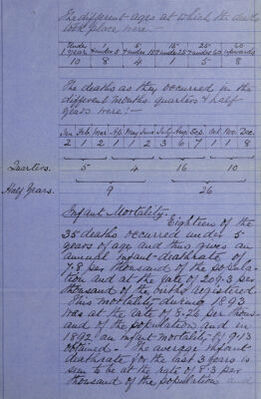 The different ages at which the deaths
took place were:—
Under 1 5 15 25 60
1 Year & under 5 & under 15 & under 25 & under 60 & upwards
10 8 4 1 5 8
The deaths as they occurred in the
different months quarters & half
years were:—
Jan. Feb. Mar. Ap. May June July Aug. Sep. Oct. Nov. Dec.
2 1 2 1 1 2 3 6 7 1 1 8
Quarters. 5 4 16 10
Half Years. 9 26
Infant Mortality.
Eighteen of the
35 deaths occurred under 5
years of age and this gives an
annual infant deathrate of
7.8 per thousand of the popula-
tion and at the rate of 209.3 per
thousand of births registered.
This mortality during 1893
was at the rate of 8.26 per thous-
and of the population and in
1892 an infant mortality of 9.13
obtained. The average infant
deathrate for the last 3 years is
seen to be at the rate of 8.3 per
thousand of the population and